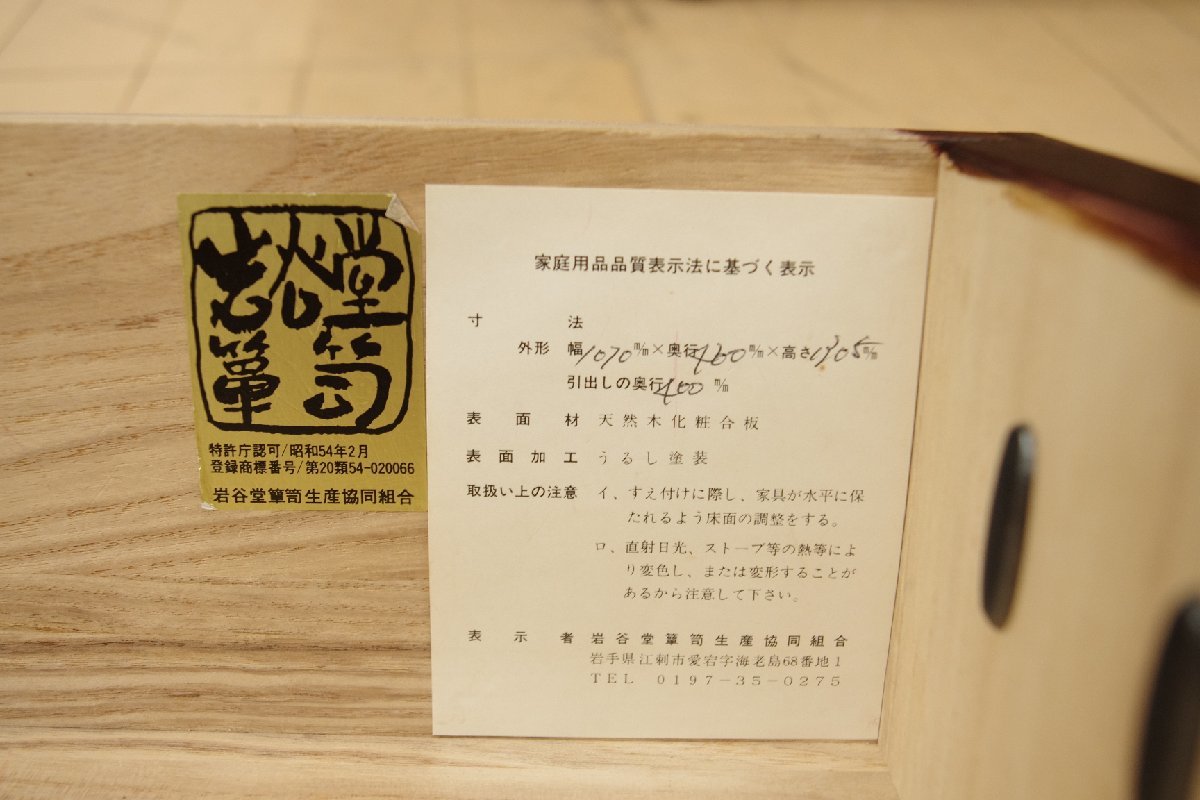 岩谷堂
簞笥
特許庁認可/昭和54年2月
登録商標番号/第20類54-020066
岩谷堂簞笥生産協同組合
家庭用品品質表示法に基づく表示
寸法
外形 幅1070m/m×奥行460m/m×高さ1305m/m
引出しの奥行400m/m
表面材 天然木化粧合板
表面加工 うるし塗装
取扱い上の注意 イ、すえ付けに際し、家具が水平に保
たれるよう床面の調整をする。
ロ、直射日光、ストーブ等の熱等によ
り変色し、または変形することが
あるから注意して下さい。
表示者 岩谷堂簞笥生産協同組合
岩手県江刺市愛宕字海老島68番地1
TEL 0197-35-0275